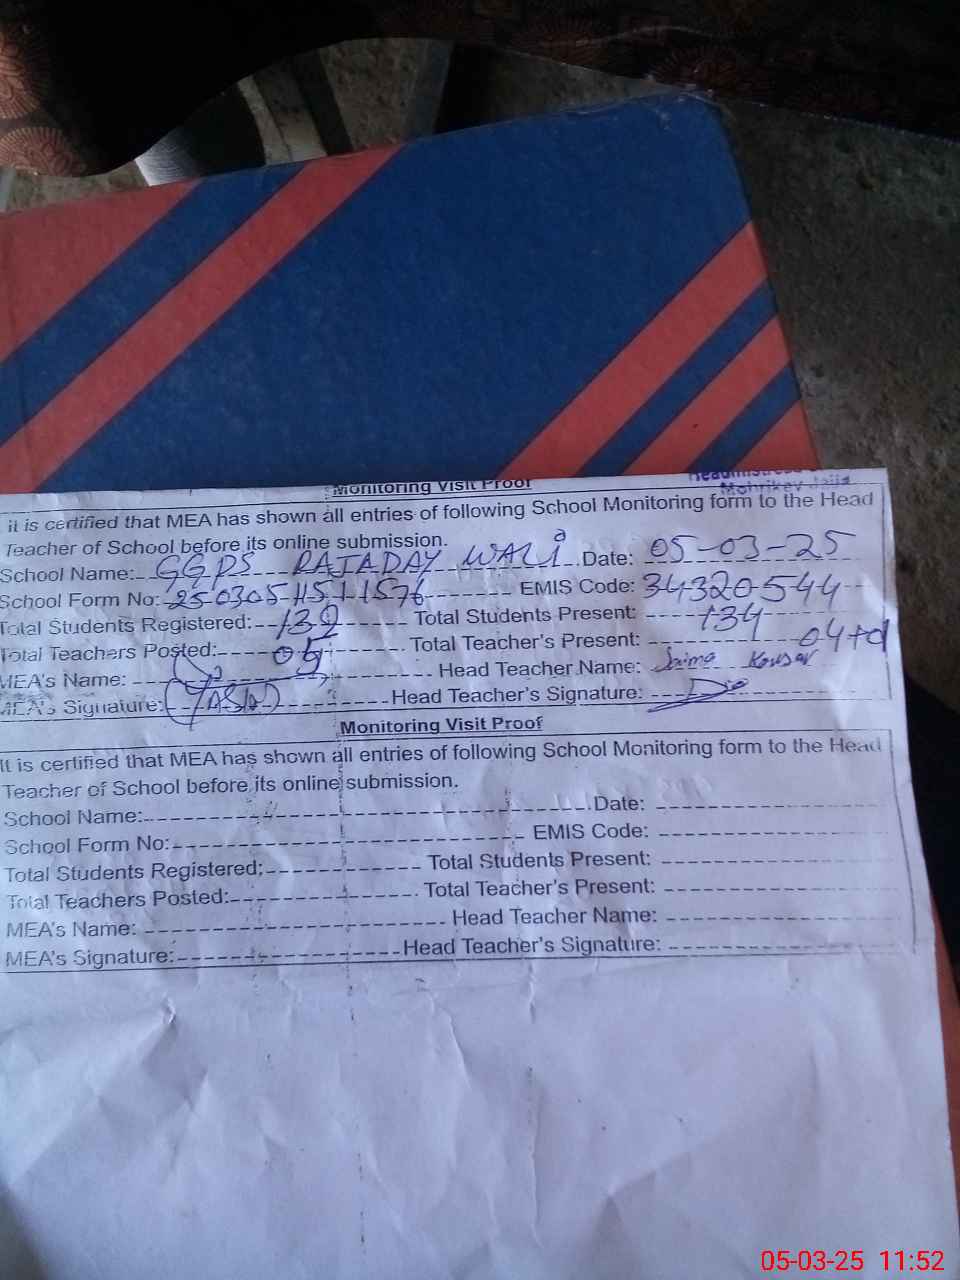 Monitoring Visit Proof
Mohrikey Jajja
it is certified that MEA has shown all entries of following School Monitoring form to the Head
Teacher of School before its online submission.
School Name: GGPS RAJADAY WALI Date: 05-03-25
School Form No: 250305-1151-1576 EMIS Code: 34320544
Total Students Registered: 139 Total Students Present: 134
Total Teachers Posted: 05 Total Teacher's Present: 04+d
MEA's Name: Head Teacher Name: Saima Kousar
MEA's Signature: Head Teacher's Signature:
Monitoring Visit Proof
It is certified that MEA has shown all entries of following School Monitoring form to the Head
Teacher of School before its online submission.
School Name: Date:
School Form No: EMIS Code:
Total Students Registered: Total Students Present:
Total Teachers Posted: Total Teacher's Present:
MEA's Name: Head Teacher Name:
MEA's Signature: Head Teacher's Signature:
05-03-25 11:52